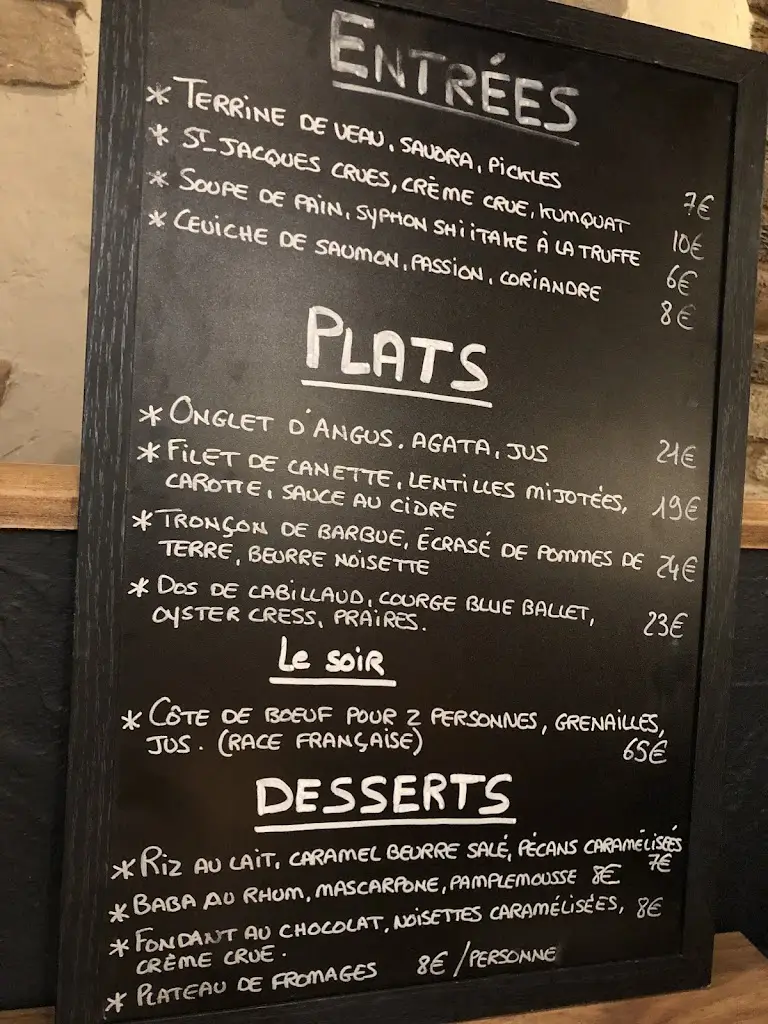 ENTRÉES
* TERRINE DE VEAU, SAVORA, PICKLES 7€
* ST-JACQUES CRUES, CRÈME CRUE, KUMQUAT 10€
* SOUPE DE PAIN, SYPHON SHIITAKE À LA TRUFFE 6€
* CEVICHE DE SAUMON, PASSION, CORIANDRE 8€
PLATS
* ONGLET D'ANGUS, AGATA, JUS 21€
* FILET DE CANETTE, LENTILLES MIJOTÉES, 19€
CAROTTE, SAUCE AU CIDRE
* TRONÇON DE BARBUE, ÉCRASÉ DE POMMES DE 24€
TERRE, BEURRE NOISETTE
* DOS DE CABILLAUD, COURGE BLUE BALLET, 23€
OYSTER CRESS, PRAIRES.
Le soir
* CÔTE DE BOEUF POUR 2 PERSONNES, GRENAILLES,
JUS. (RACE FRANÇAISE) 65€
DESSERTS
* RIZ AU LAIT, CARAMEL BEURRE SALÉ, PÉCANS CARAMÉLISÉES 7€
* BABA AU RHUM, MASCARPONE, PAMPLEMOUSSE 8€
* FONDANT AU CHOCOLAT, NOISETTES CARAMÉLISÉES, 8€
CRÈME CRUE.
* PLATEAU DE FROMAGES 8€/PERSONNE